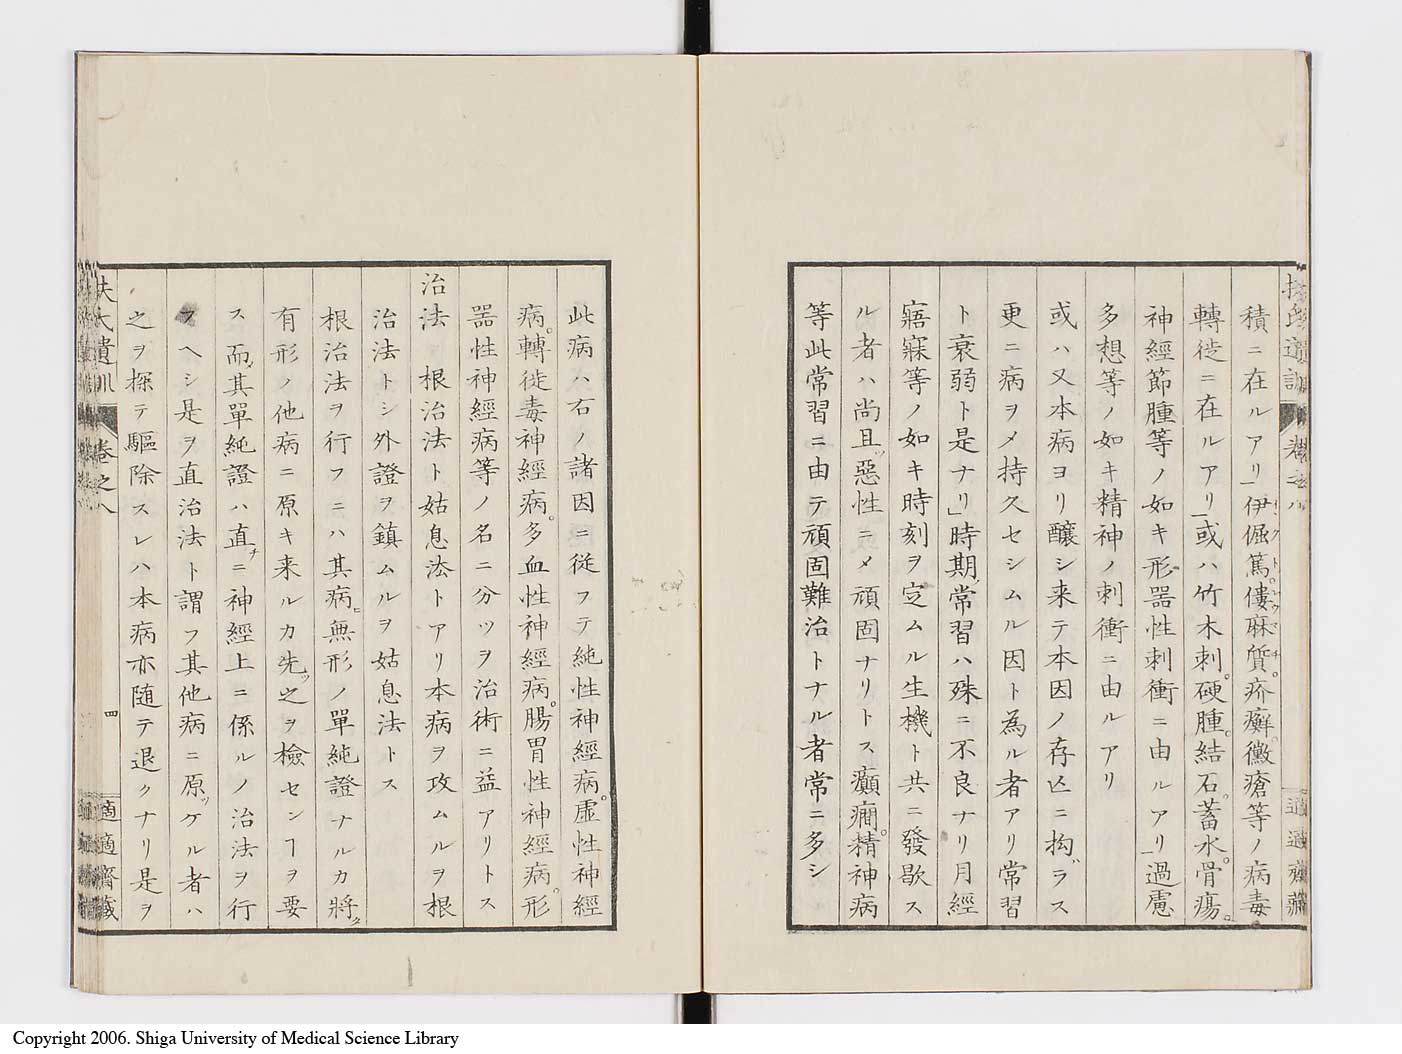 扶氏遺訓 巻之八 適適齋藏
積ニ在ルアリ」伊倔篤。僂麻質。疥癬。黴瘡等ノ病毒
轉徙ニ在ルアリ」或ハ竹木刺。硬腫。結石。蓄水。骨瘍。
神經節腫等ノ如キ形器性刺衝ニ由ルアリ」過慮
多想等ノ如キ精神ノ刺衝ニ由ルアリ
或ハ又本病ヨリ釀シ来テ本因ノ存亡ニ拘ラス
更ニ病ヲメ持久セシムル因ト為ル者アリ常習
ト衰弱ト是ナリ」時期常習ハ殊ニ不良ナリ月經
寤寐等ノ如キ時刻ヲ定ムル生機ト共ニ發歇ス
ル者ハ尚且ツ惡性ニメ頑固ナリトス癲癇。精神病
等此常習ニ由テ頑固難治トナル者常ニ多シ
此病ハ右ノ諸因ニ従フテ純性神經病。虚性神經
病。轉徙毒神經病。多血性神經病。腸胃性神經病。形
器性神經病等ノ名ニ分ツヲ治術ニ益アリトス
治法 根治法ト姑息法トアリ本病ヲ攻ムルヲ根
治法トシ外證ヲ鎮ムルヲ姑息法トス
根治法ヲ行フニハ其病ヒ無形ノ單純證ナルカ將タ
有形ノ他病ニ原キ来ルカ先ツ之ヲ檢センヿヲ要
ス而其單純證ハ直チニ神經上ニ係ルノ治法ヲ行
フヘシ是ヲ直治法ト謂フ其他病ニ原ツケル者ハ
之ヲ探テ驅除スレハ本病亦随テ退クナリ是ヲ
扶氏遺訓 巻之八 四 適適齋藏
Copyright 2006. Shiga University of Medical Science Library